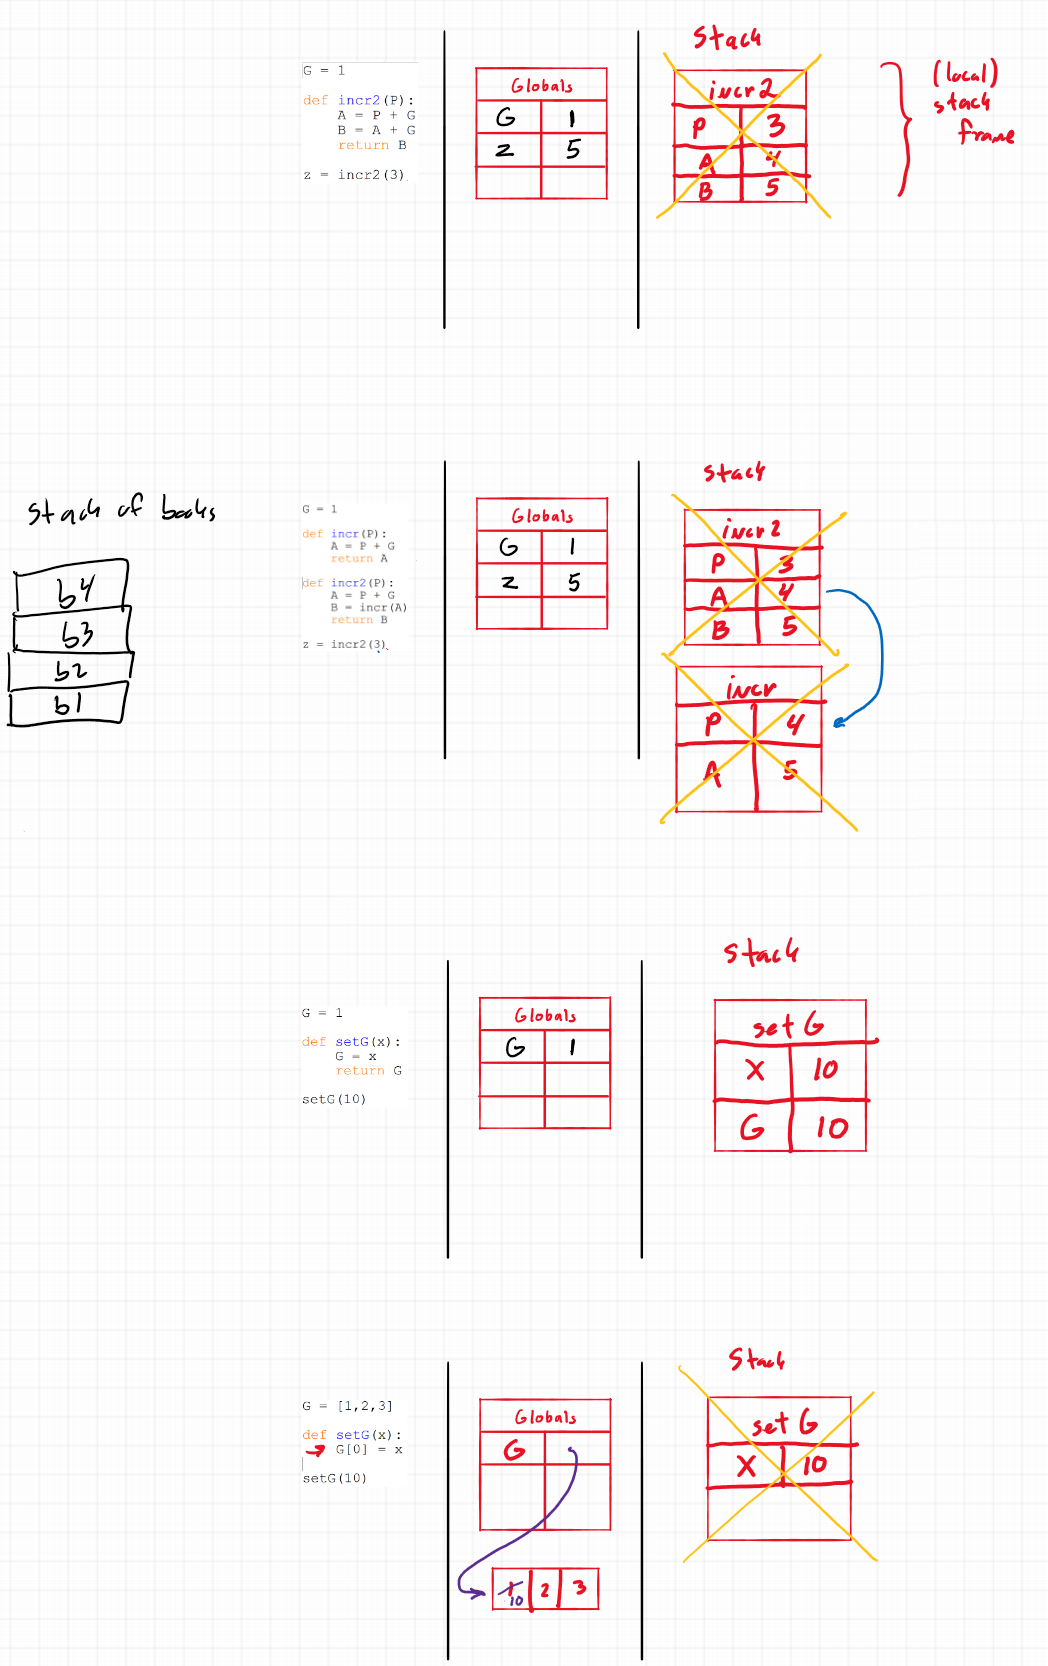 Stack
G = 1
def incr2(P):
A = P + G
B = A + G
return B
z = incr2(3)
Globals
G 1
z 5
incr2
P 3
A 4
B 5
(local)
stack
frame
stack of books
b4
b3
b2
b1
G = 1
def incr(P):
A = P + G
return A
def incr2(P):
A = P + G
B = incr(A)
return B
z = incr2(3)
Globals
G 1
z 5
stack
incr2
P 3
A 4
B 5
incr
P 4
A 5
G = 1
def setG(x):
G = x
return G
setG(10)
Globals
G 1
Stack
set G
X 10
G 10
G = [1,2,3]
def setG(x):
G[0] = x
setG(10)
Globals
G
1 2 3
10
Stack
set G
X 10